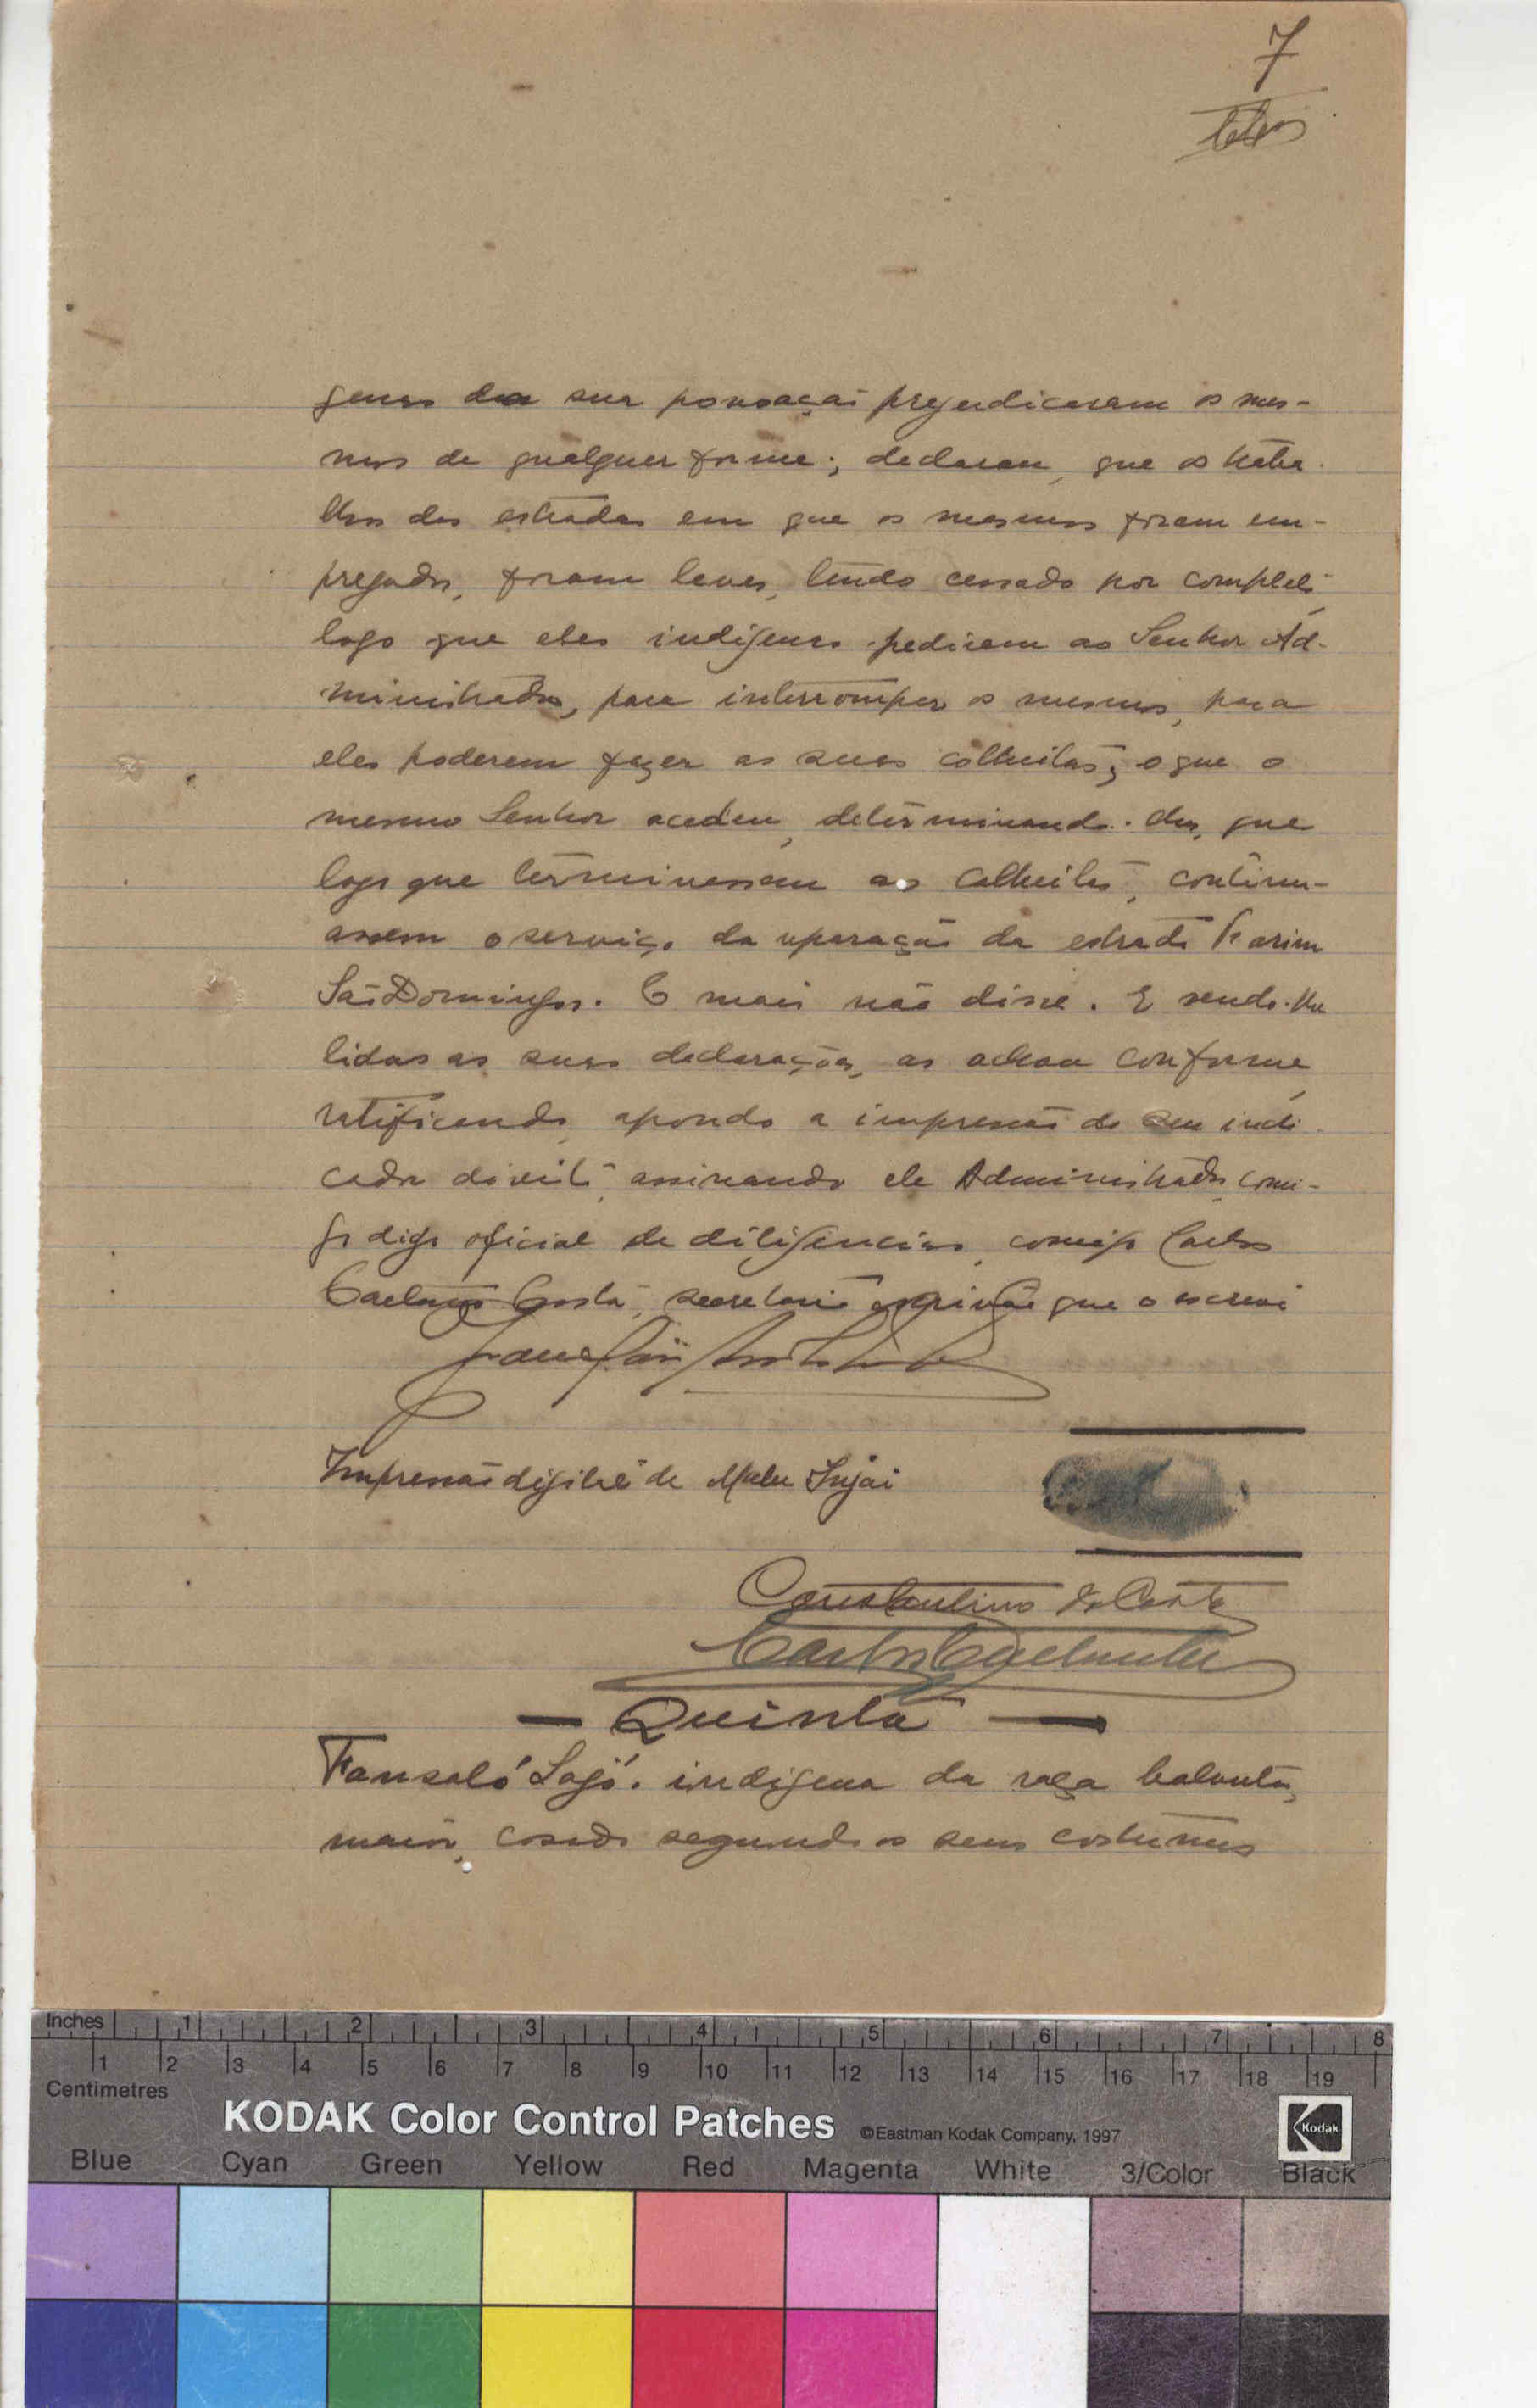 7
genas da sua povoação prejudicaram os mes-
mos de qualquer forma; declarou, que os traba-
lhos das estradas em que os mesmos foram em-
pregados, foram leves, tendo cessado por completo,
logo que eles indígenas pediram ao Senhor Ad-
ministrador, para interromper os mesmos, para
eles poderem fazer as suas colheitas; o que o
mesmo Senhor acedeu, determinando-lhes, que
logo que terminassem as colheitas, continu-
assem o serviço da reparação da estrada
São Domingos. E mais não disse. E sendo-lhe
lidas as suas declarações, as achou conforme,
ratificando, apondo a impressão do seu indi-
cador direito, assinando ele Administrador, comi-
go digo oficial de diligencias, comigo Carlos
Caetano Costa, secretario escrivão que o escrevi
Impressão digital de Malu Injai
Constantino da Costa
Carlos Caetano
— Quinta —
Fansaló Lajó. indigena da raça balanta,
maior, casado segundo os seus costumes
Inches 1 2 3 4 5 6 7 8
1 2 3 4 5 6 7 8 9 10 11 12 13 14 15 16 17 18 19
Centimetres
KODAK Color Control Patches ©Eastman Kodak Company, 1997 Kodak
Blue Cyan Green Yellow Red Magenta White 3/Color Black